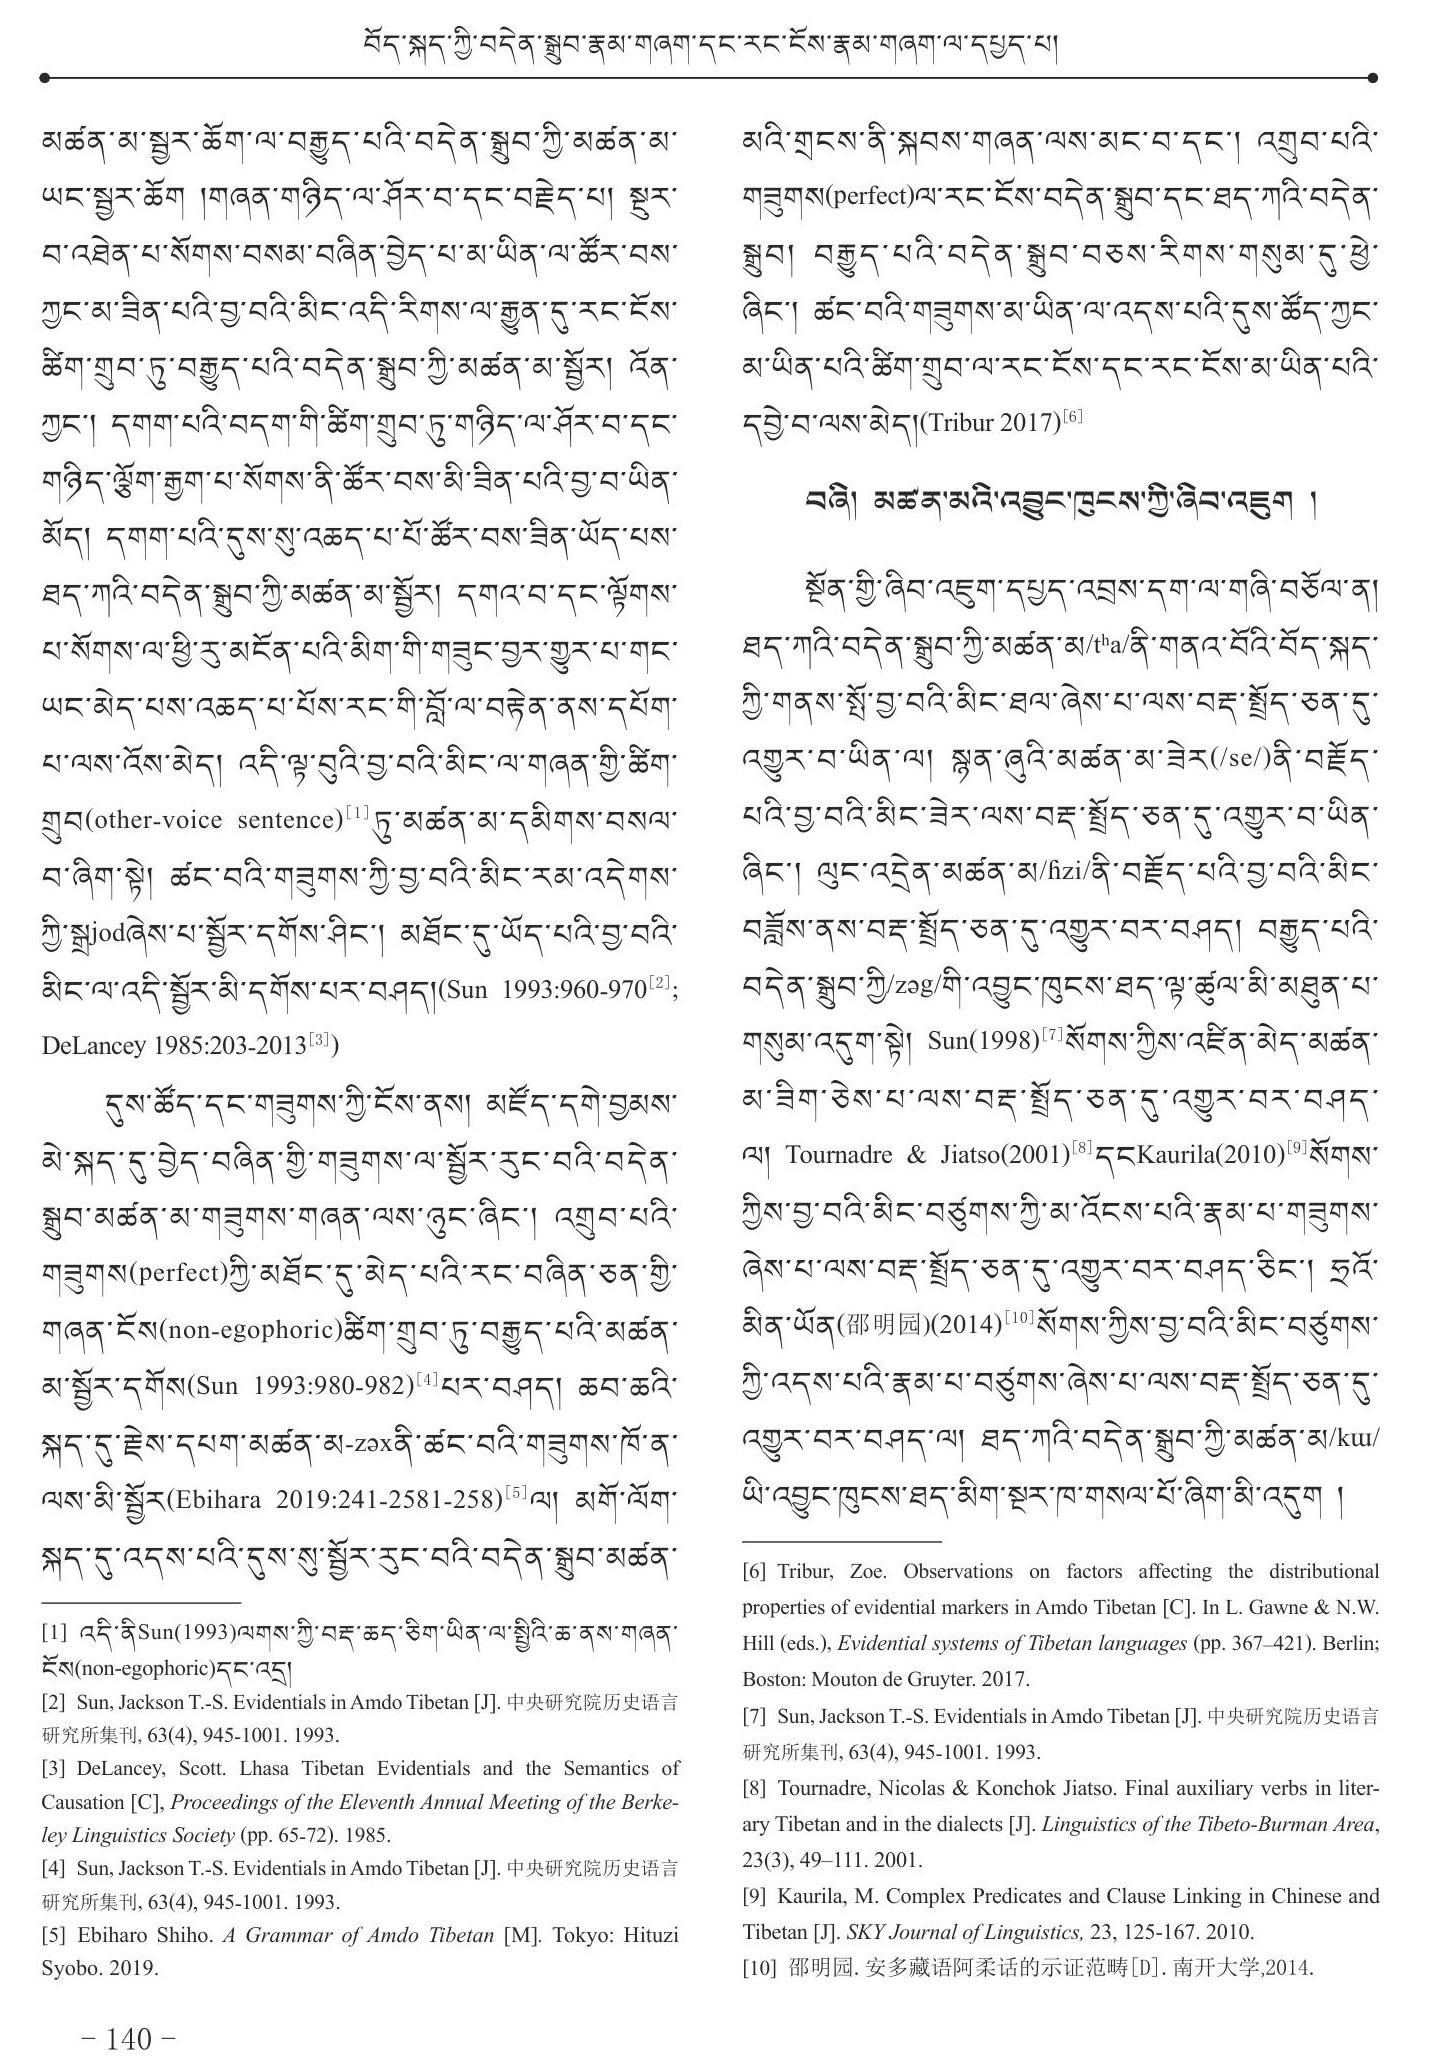 བོད་སྐད་ཀྱི་བདེན་སྒྲུབ་རྣམ་གཞག་དང་རང་ངོས་རྣམ་གཞག་ལ་དཔྱད་པ།
མཚན་མ་སྦྱར་ཆོག་ལ་བརྒྱུད་པའི་བདེན་སྒྲུབ་ཀྱི་མཚན་མ་
ཡང་སྦྱར་ཆོག །གཞན་གཉིད་ལ་ཤོར་བ་དང་བརྗེད་པ། སྔུར་
བ་འཐེན་པ་སོགས་བསམ་བཞིན་བྱེད་པ་མ་ཡིན་ལ་ཚོར་བས་
ཀྱང་མ་ཟིན་པའི་བྱ་བའི་མིང་འདི་རིགས་ལ་རྒྱུན་དུ་རང་ངོས་
ཚིག་གྲུབ་ཏུ་བརྒྱུད་པའི་བདེན་སྒྲུབ་ཀྱི་མཚན་མ་སྦྱོར། འོན་
ཀྱང་། དགག་པའི་བདག་གི་ཚིག་གྲུབ་ཏུ་གཉིད་ལ་ཤོར་བ་དང་
གཉིད་ལྕོག་རྒྱག་པ་སོགས་ནི་ཚོར་བས་མི་ཟིན་པའི་བྱ་བ་ཡིན་
མོད། དགག་པའི་དུས་སུ་འཆད་པ་པོ་ཚོར་བས་ཟིན་ཡོད་པས་
ཐད་ཀའི་བདེན་སྒྲུབ་ཀྱི་མཚན་མ་སྦྱོར། དགའ་བ་དང་ལྟོགས་
པ་སོགས་ལ་ཕྱི་རུ་མངོན་པའི་མིག་གི་གཟུང་བྱར་གྱུར་པ་གང་
ཡང་མེད་པས་འཆད་པ་པོས་རང་གི་བློ་ལ་བརྟེན་ནས་དཔོག་
པ་ལས་འོས་མེད། འདི་ལྟ་བུའི་བྱ་བའི་མིང་ལ་གཞན་གྱི་ཚིག་
གྲུབ(other-voice sentence)[1]ཏུ་མཚན་མ་དམིགས་བསལ་
བ་ཞིག་སྟེ། ཚང་བའི་གཟུགས་ཀྱི་བྱ་བའི་མིང་རམ་འདེགས་
ཀྱི་སྒྲjodཞེས་པ་སྦྱོར་དགོས་ཤིང་། མཐོང་དུ་ཡོད་པའི་བྱ་བའི་
མིང་ལ་འདི་སྦྱོར་མི་དགོས་པར་བཤད།(Sun 1993:960-970[2];
DeLancey 1985:203-2013[3])
དུས་ཚོད་དང་གཟུགས་ཀྱི་ངོས་ནས། མཛོད་དགེ་བྱམས་
མེ་སྐད་དུ་བྱེད་བཞིན་གྱི་གཟུགས་ལ་སྦྱོར་རུང་བའི་བདེན་
སྒྲུབ་མཚན་མ་གཟུགས་གཞན་ལས་ཉུང་ཞིང་། འགྲུབ་པའི་
གཟུགས(perfect)ཀྱི་མཐོང་དུ་མེད་པའི་རང་བཞིན་ཅན་གྱི་
གཞན་ངོས(non-egophoric)ཚིག་གྲུབ་ཏུ་བརྒྱུད་པའི་མཚན་
མ་སྦྱོར་དགོས(Sun 1993:980-982)[4]པར་བཤད། ཆབ་ཆའི་
སྐད་དུ་རྗེས་དཔག་མཚན་མ-zəxནི་ཚང་བའི་གཟུགས་ཁོ་ན་
ལས་མི་སྦྱོར(Ebihara 2019:241-2581-258)[5]ལ། མགོ་ལོག་
སྐད་དུ་འདས་པའི་དུས་སུ་སྦྱོར་རུང་བའི་བདེན་སྒྲུབ་མཚན་
[1] འདི་ནིSun(1993)ལགས་ཀྱི་བརྡ་ཆད་ཅིག་ཡིན་ལ་སྤྱིའི་ཆ་ནས་གཞན་
ངོས(non-egophoric)དང་འདྲ།
[2] Sun, Jackson T.-S. Evidentials in Amdo Tibetan [J]. 中央研究院历史语言
研究所集刊, 63(4), 945-1001. 1993.
[3] DeLancey, Scott. Lhasa Tibetan Evidentials and the Semantics of
Causation [C], Proceedings of the Eleventh Annual Meeting of the Berke-
ley Linguistics Society (pp. 65-72). 1985.
[4] Sun, Jackson T.-S. Evidentials in Amdo Tibetan [J]. 中央研究院历史语言
研究所集刊, 63(4), 945-1001. 1993.
[5] Ebiharo Shiho. A Grammar of Amdo Tibetan [M]. Tokyo: Hituzi
Syobo. 2019.
མའི་གྲངས་ནི་སྐབས་གཞན་ལས་མང་བ་དང་། འགྲུབ་པའི་
གཟུགས(perfect)ལ་རང་ངོས་བདེན་སྒྲུབ་དང་ཐད་ཀའི་བདེན་
སྒྲུབ། བརྒྱུད་པའི་བདེན་སྒྲུབ་བཅས་རིགས་གསུམ་དུ་ཕྱེ་
ཞིང་། ཚང་བའི་གཟུགས་མ་ཡིན་ལ་འདས་པའི་དུས་ཚོད་ཀྱང་
མ་ཡིན་པའི་ཚིག་གྲུབ་ལ་རང་ངོས་དང་རང་ངོས་མ་ཡིན་པའི་
དབྱེ་བ་ལས་མེད།(Tribur 2017)[6]
བཞི། མཚན་མའི་འབྱུང་ཁུངས་ཀྱི་ཞིབ་འཇུག །
སྔོན་གྱི་ཞིབ་འཇུག་དཔྱད་འབྲས་དག་ལ་གཞི་བཅོལ་ན།
ཐད་ཀའི་བདེན་སྒྲུབ་ཀྱི་མཚན་མ/tʰa/ནི་གནའ་བོའི་བོད་སྐད་
ཀྱི་གནས་སྤོ་བྱ་བའི་མིང་ཐལ་ཞེས་པ་ལས་བརྡ་སྤྲོད་ཅན་དུ་
འགྱུར་བ་ཡིན་ལ། སྙན་ཞུའི་མཚན་མ་ཟེར(/se/)ནི་བརྗོད་
པའི་བྱ་བའི་མིང་ཟེར་ལས་བརྡ་སྤྲོད་ཅན་དུ་འགྱུར་བ་ཡིན་
ཞིང་། ལུང་འདྲེན་མཚན་མ/ɦzi/ནི་བརྗོད་པའི་བྱ་བའི་མིང་
བཟློས་ནས་བརྡ་སྤྲོད་ཅན་དུ་འགྱུར་བར་བཤད། བརྒྱུད་པའི་
བདེན་སྒྲུབ་ཀྱི/zəg/གི་འབྱུང་ཁུངས་ཐད་ལྟ་ཚུལ་མི་མཐུན་པ་
གསུམ་འདུག་སྟེ། Sun(1998)[7]སོགས་ཀྱིས་འཛིན་མེད་མཚན་
མ་ཟིག་ཅེས་པ་ལས་བརྡ་སྤྲོད་ཅན་དུ་འགྱུར་བར་བཤད་
ལ། Tournadre & Jiatso(2001)[8]དངKaurila(2010)[9]སོགས་
ཀྱིས་བྱ་བའི་མིང་བཙུགས་ཀྱི་མ་འོངས་པའི་རྣམ་པ་གཟུགས་
ཞེས་པ་ལས་བརྡ་སྤྲོད་ཅན་དུ་འགྱུར་བར་བཤད་ཅིང་། ཧྲའོ་
མིན་ཡོན(邵明园)(2014)[10]སོགས་ཀྱིས་བྱ་བའི་མིང་བཙུགས་
ཀྱི་འདས་པའི་རྣམ་པ་བཙུགས་ཞེས་པ་ལས་བརྡ་སྤྲོད་ཅན་དུ་
འགྱུར་བར་བཤད་ལ། ཐད་ཀའི་བདེན་སྒྲུབ་ཀྱི་མཚན་མ/kɯ/
ཡི་འབྱུང་ཁུངས་ཐད་མིག་སྔར་ཁ་གསལ་པོ་ཞིག་མི་འདུག །
[6] Tribur, Zoe. Observations on factors affecting the distributional
properties of evidential markers in Amdo Tibetan [C]. In L. Gawne & N.W.
Hill (eds.), Evidential systems of Tibetan languages (pp. 367–421). Berlin;
Boston: Mouton de Gruyter. 2017.
[7] Sun, Jackson T.-S. Evidentials in Amdo Tibetan [J]. 中央研究院历史语言
研究所集刊, 63(4), 945-1001. 1993.
[8] Tournadre, Nicolas & Konchok Jiatso. Final auxiliary verbs in liter-
ary Tibetan and in the dialects [J]. Linguistics of the Tibeto-Burman Area,
23(3), 49–111. 2001.
[9] Kaurila, M. Complex Predicates and Clause Linking in Chinese and
Tibetan [J]. SKY Journal of Linguistics, 23, 125-167. 2010.
[10] 邵明园. 安多藏语阿柔话的示证范畴[D]. 南开大学,2014.
– 140 –